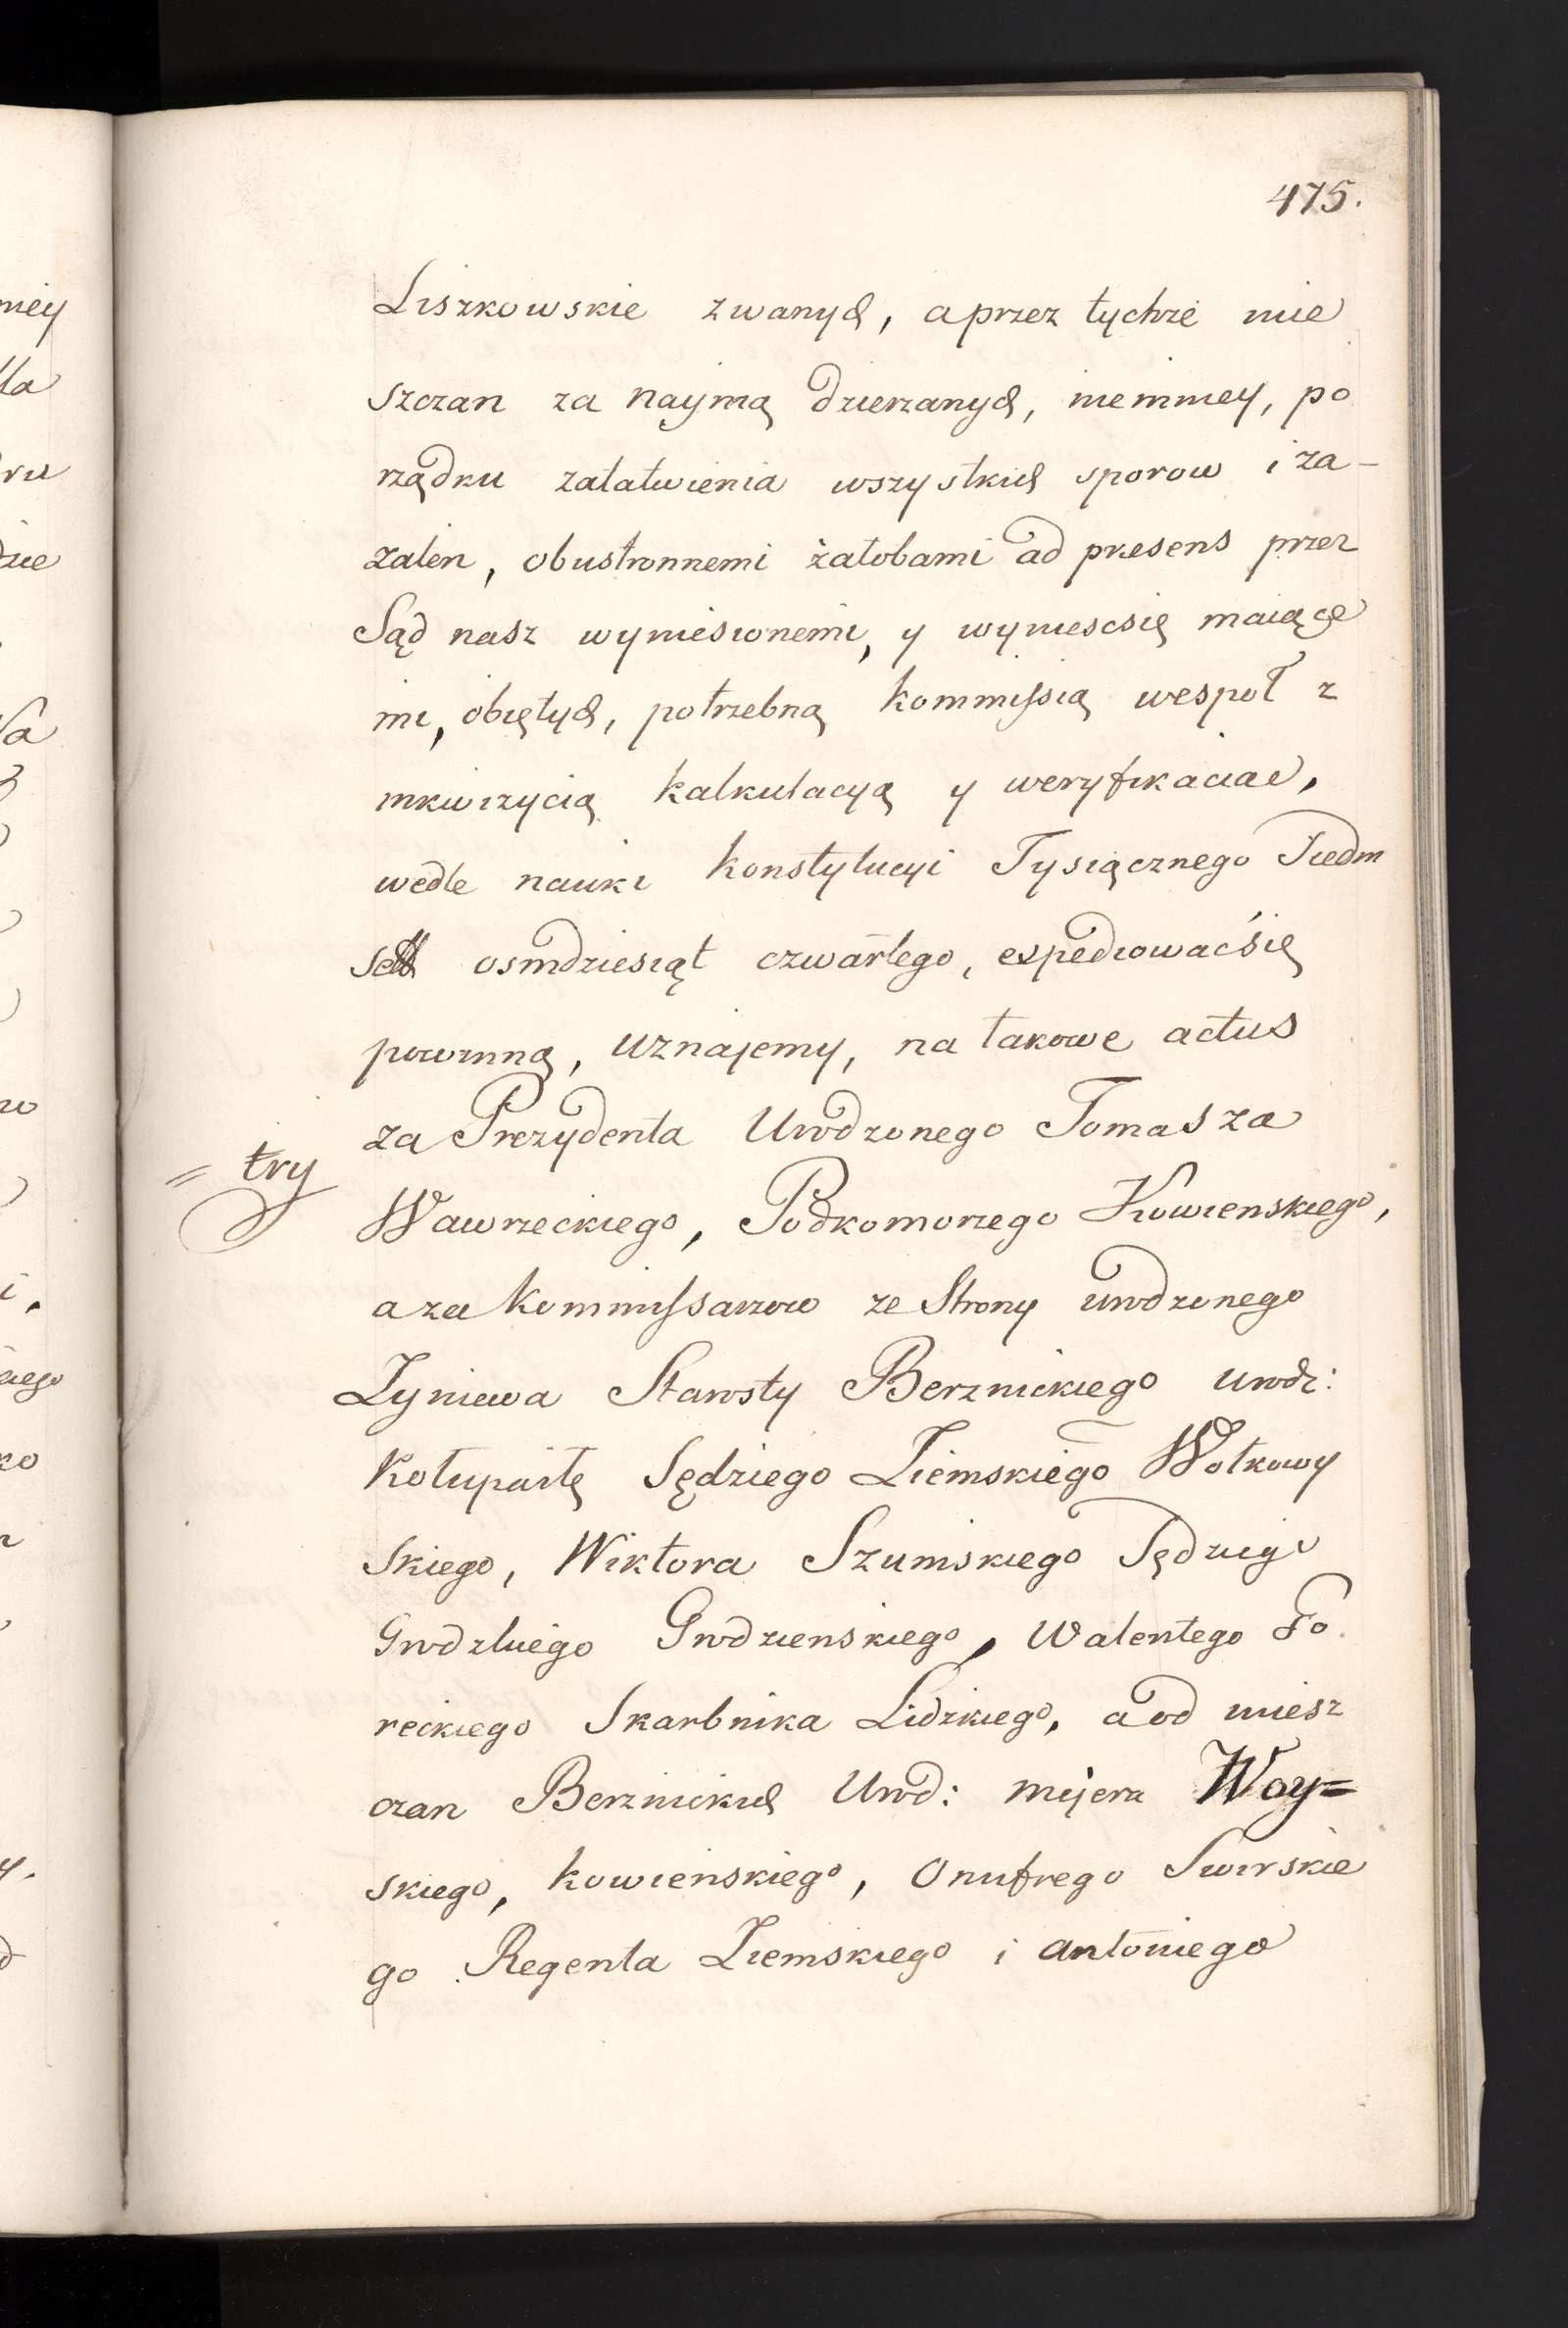 475.
Liszkowskie zwanych, a przez tychże mie
szczan za naymą dzierzanych, niemniey, po
rządku załatwienia wszystkich sporow i za-
zalen, obustronnemi żałobami ad presens przez
Sąd nasz wyniesionemi, y wyniescsię maiące
mi, obiętych, potrzebną kommissią wespoł z
inkwizycią kalkulacyą y weryfikaciae,
wedle nauki konstytucyi Tysiącznego Siedm
set osmdziesiąt czwartego, expediowaćsię
powinną, uznajemy, na takowe actus
za Prezydenta Urodzonego Tomasza
= try
Wawrzeckiego, Podkomorzego Kowienskiego,
a za Kommissarzow ze Strony urodzonego
Zyniewa Starosty Berznickiego urodz:
Kołupaiłę Sędziego Ziemskiego Wołkowy
skiego, Wiktora Szumskiego Sędziego
Grodzkiego Grodzienskiego, Walentego Fo
reckiego Skarbnika Lidzkiego, a od miesz
czan Berznickich Urod: mejera Woy=
skiego, kowienskiego, Onufrego Swirskie
go Regenta Ziemskiego i antoniego